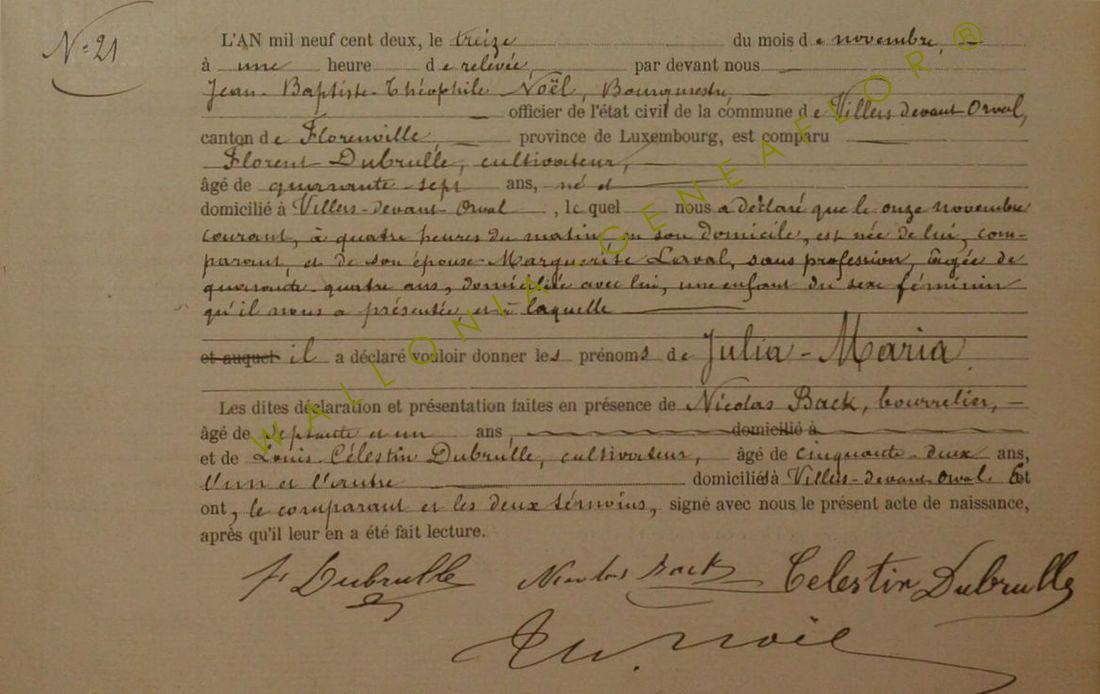 N° 21
L'AN mil neuf cent deux, le treize du mois de novembre,
à une heure de relevée, par devant nous
Jean-Baptiste-Théophile Noël, Bourgmestre,
officier de l'état civil de la commune de Villers devant Orval,
canton de Florenville province de Luxembourg, est comparu
Florent Dubrulle, cultivateur,
âgé de quarante-sept ans, né et
domicilié à Villers-devant-Orval, lequel nous a déclaré que le onze novembre
courant, à quatre heures du matin, en son domicile, est née de lui, com-
parant, et de son épouse Marguerite Laval, sans profession, âgée de
quarante-quatre ans, domiciliée avec lui, une enfant du sexe féminin
qu'il nous a présentée, et à laquelle
et auquel il a déclaré vouloir donner les prénoms de Julia-Maria
Les dites déclaration et présentation faites en présence de Nicolas Back, bourrelier,
âgé de septante et un ans, domicilié à
et de Louis Célestin Dubrulle, cultivateur, âgé de cinquante-deux ans,
l'un et l'autre domiciliés à Villers-devant-Orval. Et
ont, le comparant et les deux témoins, signé avec nous le présent acte de naissance,
après qu'il leur en a été fait lecture.
F Dubrulle Nicolas Back Celestin Dubrulle
Th. Noël
WALLONIA-GENEAFLOR ®